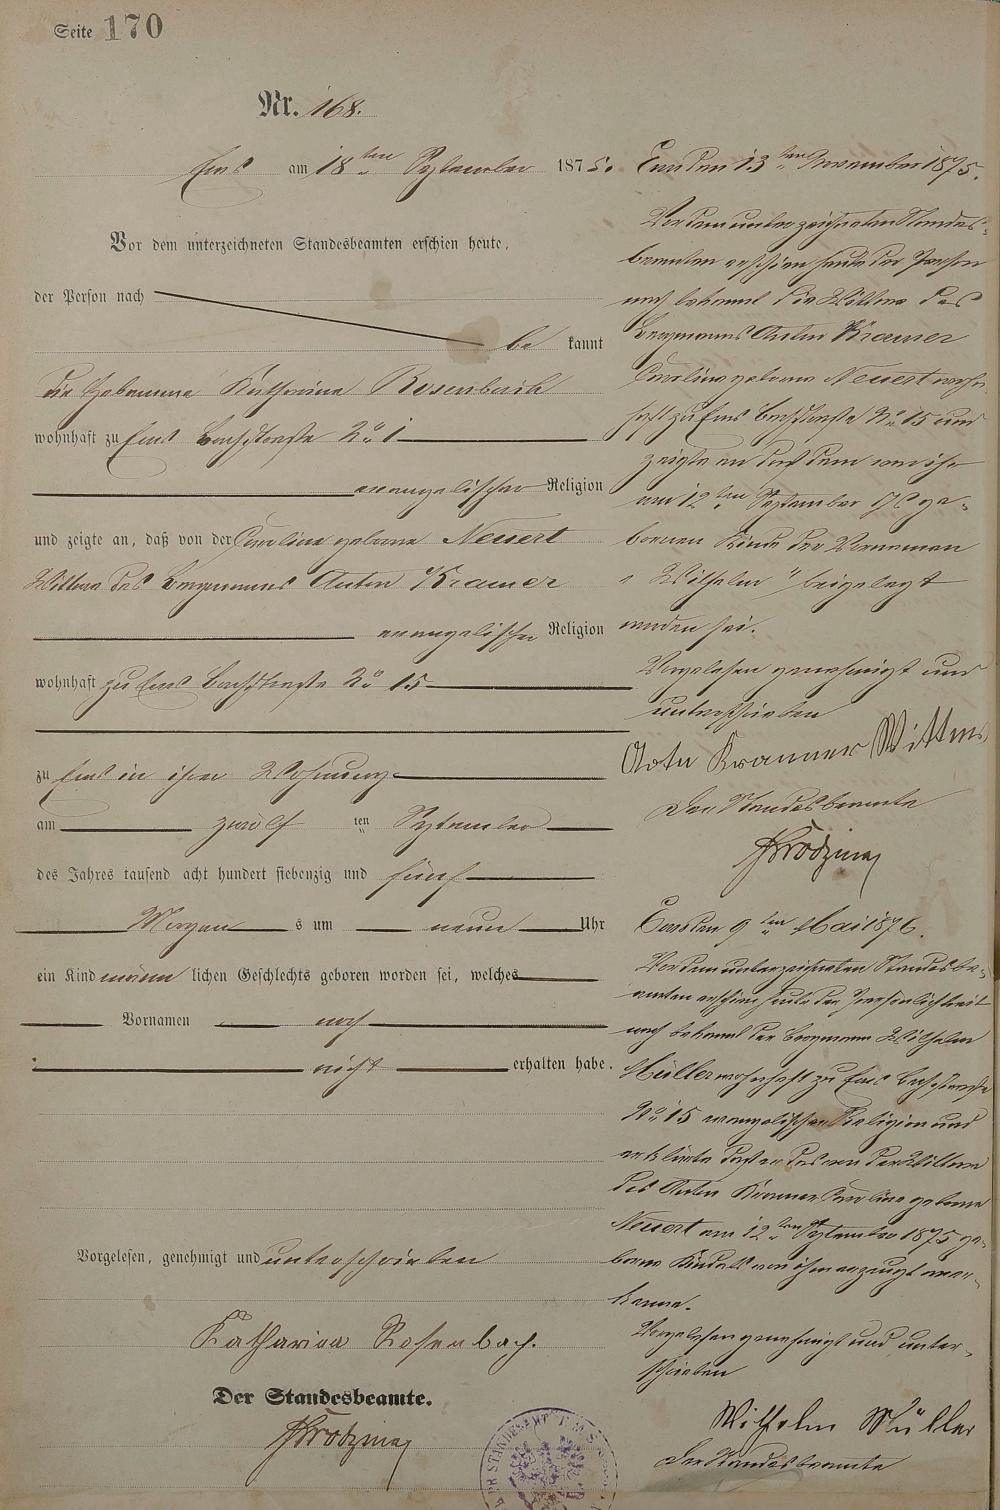 Seite 170
Nr. 168.
Ems am 18ten September 1875.
Vor dem unterzeichneten Standesbeamten erschien heute,
der Person nach
bekannt
die Hebamme Katharina Rosenbach
wohnhaft zu Ems Bachstraße No 1
evangelischer Religion
und zeigte an, daß von der Caroline geborne Neuert
Wittwe des Bergmanns Anton Kramer
evangelischer Religion
wohnhaft zu Ems Bachstraße No 15
zu Ems in ihrer Wohnung
am zwölf ten September
des Jahres tausend acht hundert siebenzig und fünf
Morgens um neun Uhr
ein Kind männlichen Geschlechts geboren worden sei, welches
Vornamen noch
nicht erhalten habe.
Vorgelesen, genehmigt und unterschrieben
Katharina Rosenbach.
Der Standesbeamte.
Ems den 13ten November 1875.
Vor dem unterzeichneten Standes-
beamten erschien heute der Person
nach bekannt die Wittwe des
Bergmanns Anton Kramer
Caroline geborne Neuert wohn-
haft zu Ems Bachstraße No 15 und
zeigte an daß dem von ihr
am 12ten September ge-
bornen Kinde der Vornamen
"Wilhelm" beigelegt
worden sei.
Vorgelesen genehmigt und
unterschrieben
Kramer Wittwe
Der Standesbeamte
Ems den 9ten Mai 1876.
Vor dem unterzeichneten Standesbe-
amten erschien heute der Persönlichkeit
nach bekannt der Bergmann Wilhelm
Müller wohnhaft zu Ems Bachstraße
No 15 evangelischer Religion und
erklärte daß er das von der Wittwe
des Anton Kramer Caroline geborne
Neuert am 12ten September 1875 ge-
borne Kind als von ihm erzeugt aner-
kenne.
Vorgelesen genehmigt und unter-
schrieben
Wilhelm Müller
Der Standesbeamte